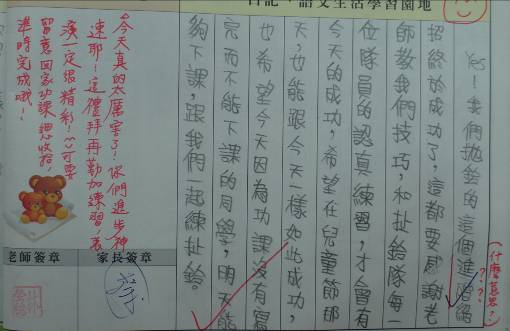 日記、語文生活學習園地
Yes!我們拋鈴的這個進階絕
招終於成功了,這都要感謝老
師教我們技巧,和扯鈴隊每一
位隊員的認真練習,才會有
今天的成功,希望在兒童節那
天,也能跟今天一樣如此成功,
也希望今天因為功課沒有寫
完而不能下課的同學,明天能
夠下課,跟我們一起練扯鈴。
(什麼意思?)
???
今天真的太厲害了!你們進步神
速耶!這禮拜再勤加練習,表
演一定很精彩!可要
留意回家功課
準時完成哦!
老師簽章
家長簽章